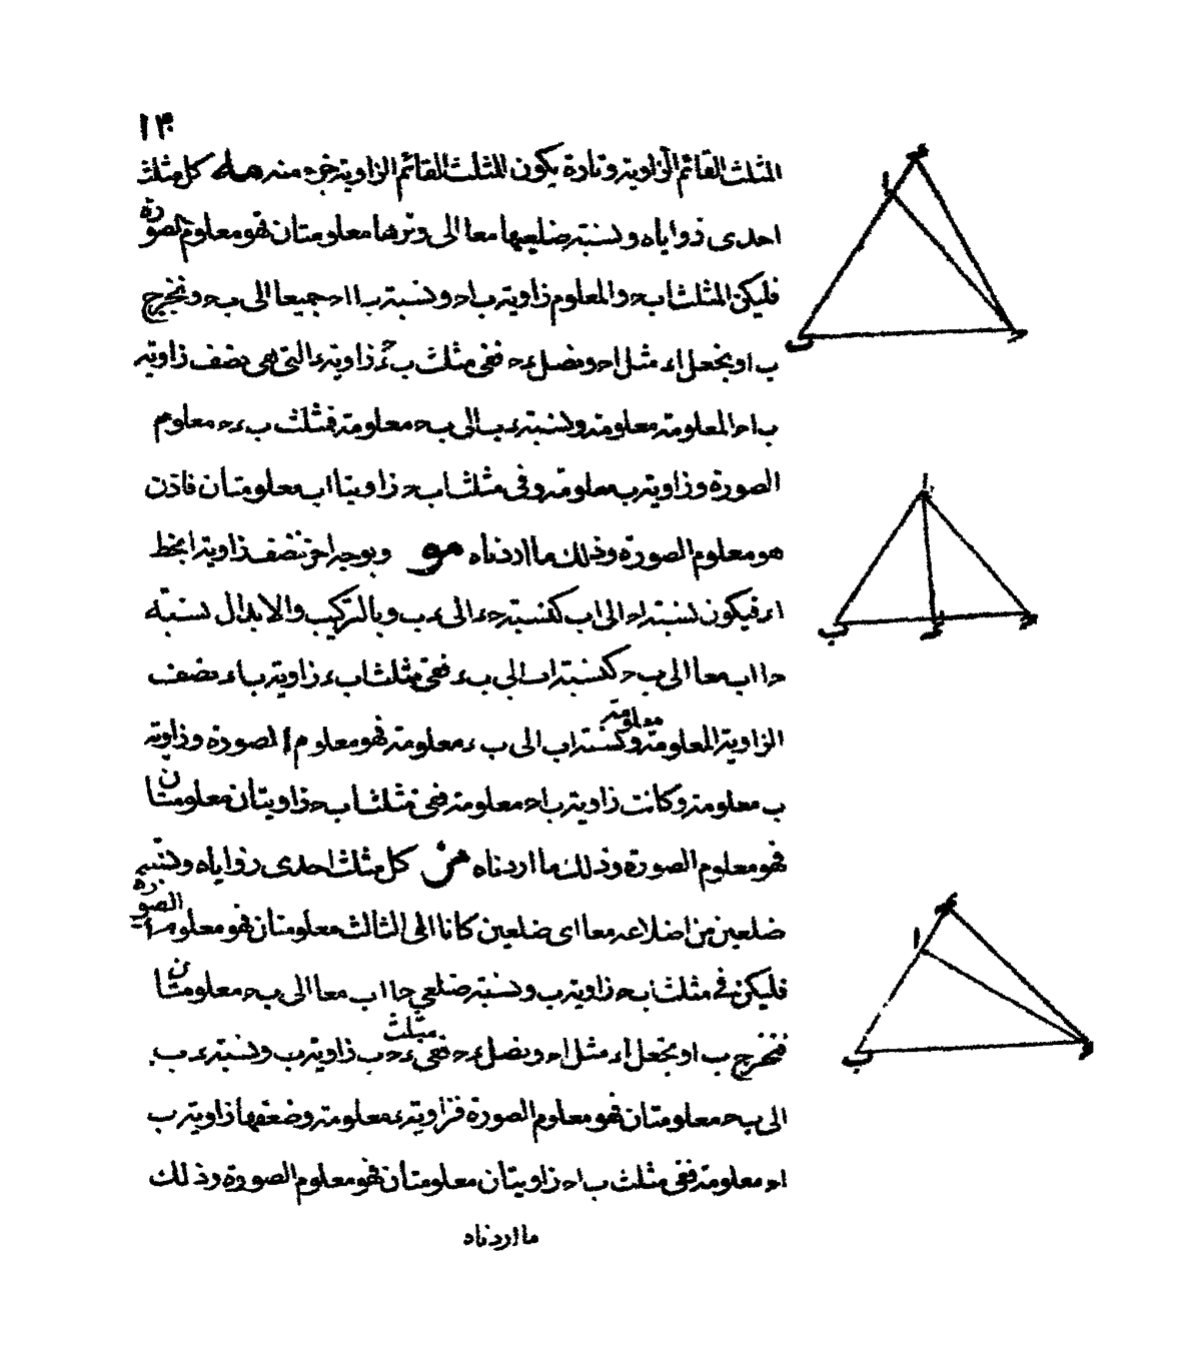 ١٣
المثلث القائم الزاوية وتارة يكون المثلث القائم الزاوية خيره منه مه كل مثلث
احدى زواياه ونسبة ضلعيها معا الى وترها معلومتان فهو معلوم الصورة
فليكن المثلث ابحـ والمعلوم زاوية باحـ ونسبة با احـ جميعا الى بحـ ونخرج
ب ا ونجعل اء مثل احـ ونصل ءحـ ففى مثلث بءحـ زاوية ء التى هى نصف زاوية
باحـ المعلومة معلومة ونسبة ءب الى بحـ معلومة فمثلث بءحـ معلوم
الصورة وزاوية ب معلومة وفى مثلث ابحـ زاويتا ا ب معلومتان فاذن
هو معلوم الصورة وذلك ما اردناه مو وبوجه اخر ننصف زاوية ا بخط
اء فيكون نسبة احـ الى اب كنسبة حـء الى ءب وبالتركيب والابدال نسبة
حـا اب معا الى بحـ كنسبة اب الى بء ففى مثلث ابء زاوية باء نصف
الزاوية المعلومة معلومة وكنسبة اب الى بء معلومة فهو معلوم الصورة وزاوية
ب معلومة وكانت زاوية باحـ معلومة ففى مثلث ابحـ زاويتان معلومتان
فهو معلوم الصورة وذلك ما اردناه مز كل مثلث احدى زواياه ونسبة
ضلعين من اضلاعه معا اى ضلعين كانا الى الثالث معلومتان فهو معلوم الصورة
فليكن فى مثلث ابحـ زاوية ب ونسبة ضلعى حا اب معا الى بحـ معلومتان
فنخرج ب ا ونجعل اء مثل احـ ونصل ءحـ ففى مثلث ءحـب زاوية ب ونسبة ءب
الى بحـ معلومتان فهو معلوم الصورة فزاوية ء معلومة وضعفها زاوية ب
احـ معلومة ففى مثلث باحـ زاويتان معلومتان فهو معلوم الصورة وذلك
ما اردناه
ء
ا
ب
حـ
ا
ب
ء
حـ
ء
ا
ب
حـ